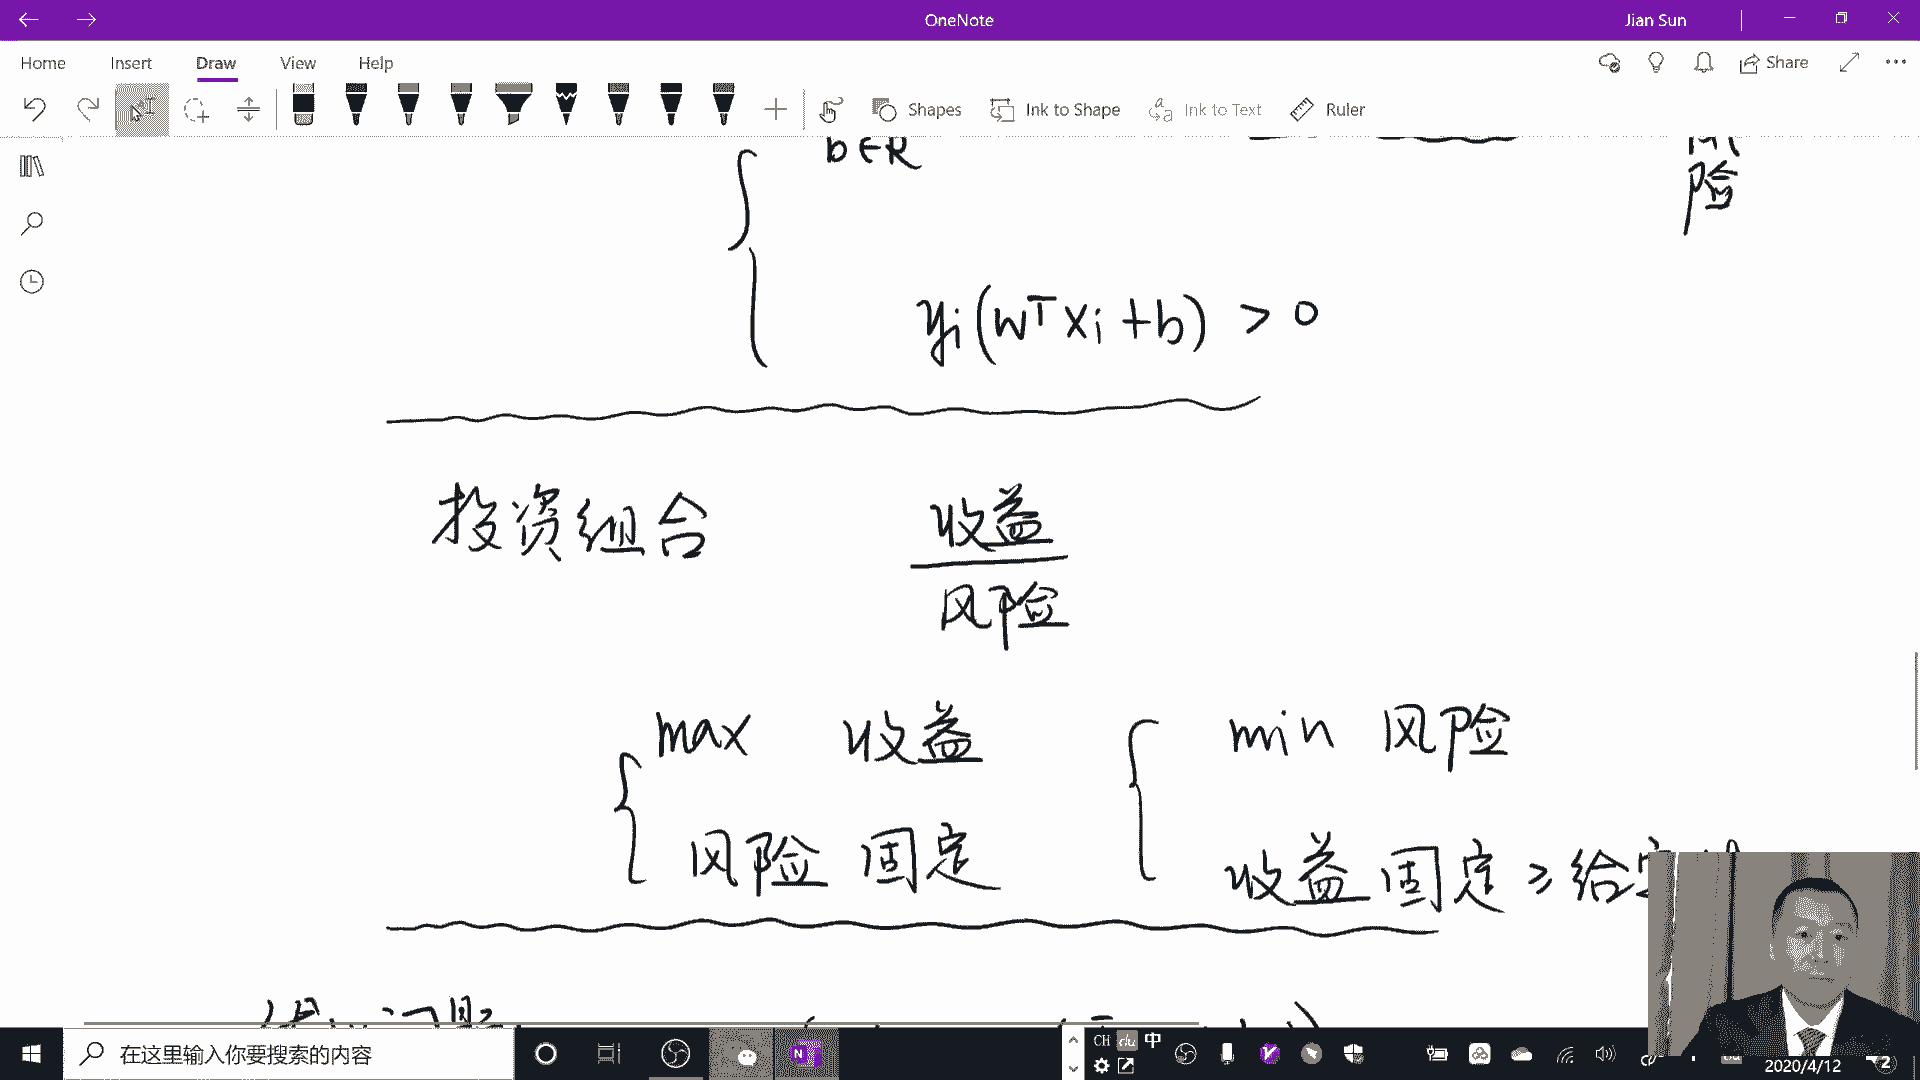 OneNote
Jian Sun
Home Insert Draw View Help
Share
Shapes Ink to Shape Ink to Text Ruler
b∈R
险
yi(wᵀxi+b) > 0
投资组合
收益
风险
max 收益
风险 固定
min 风险
收益 固定 ≥ 给定
问题
在这里输入你要搜索的内容
CH du 中
2020/4/12
2